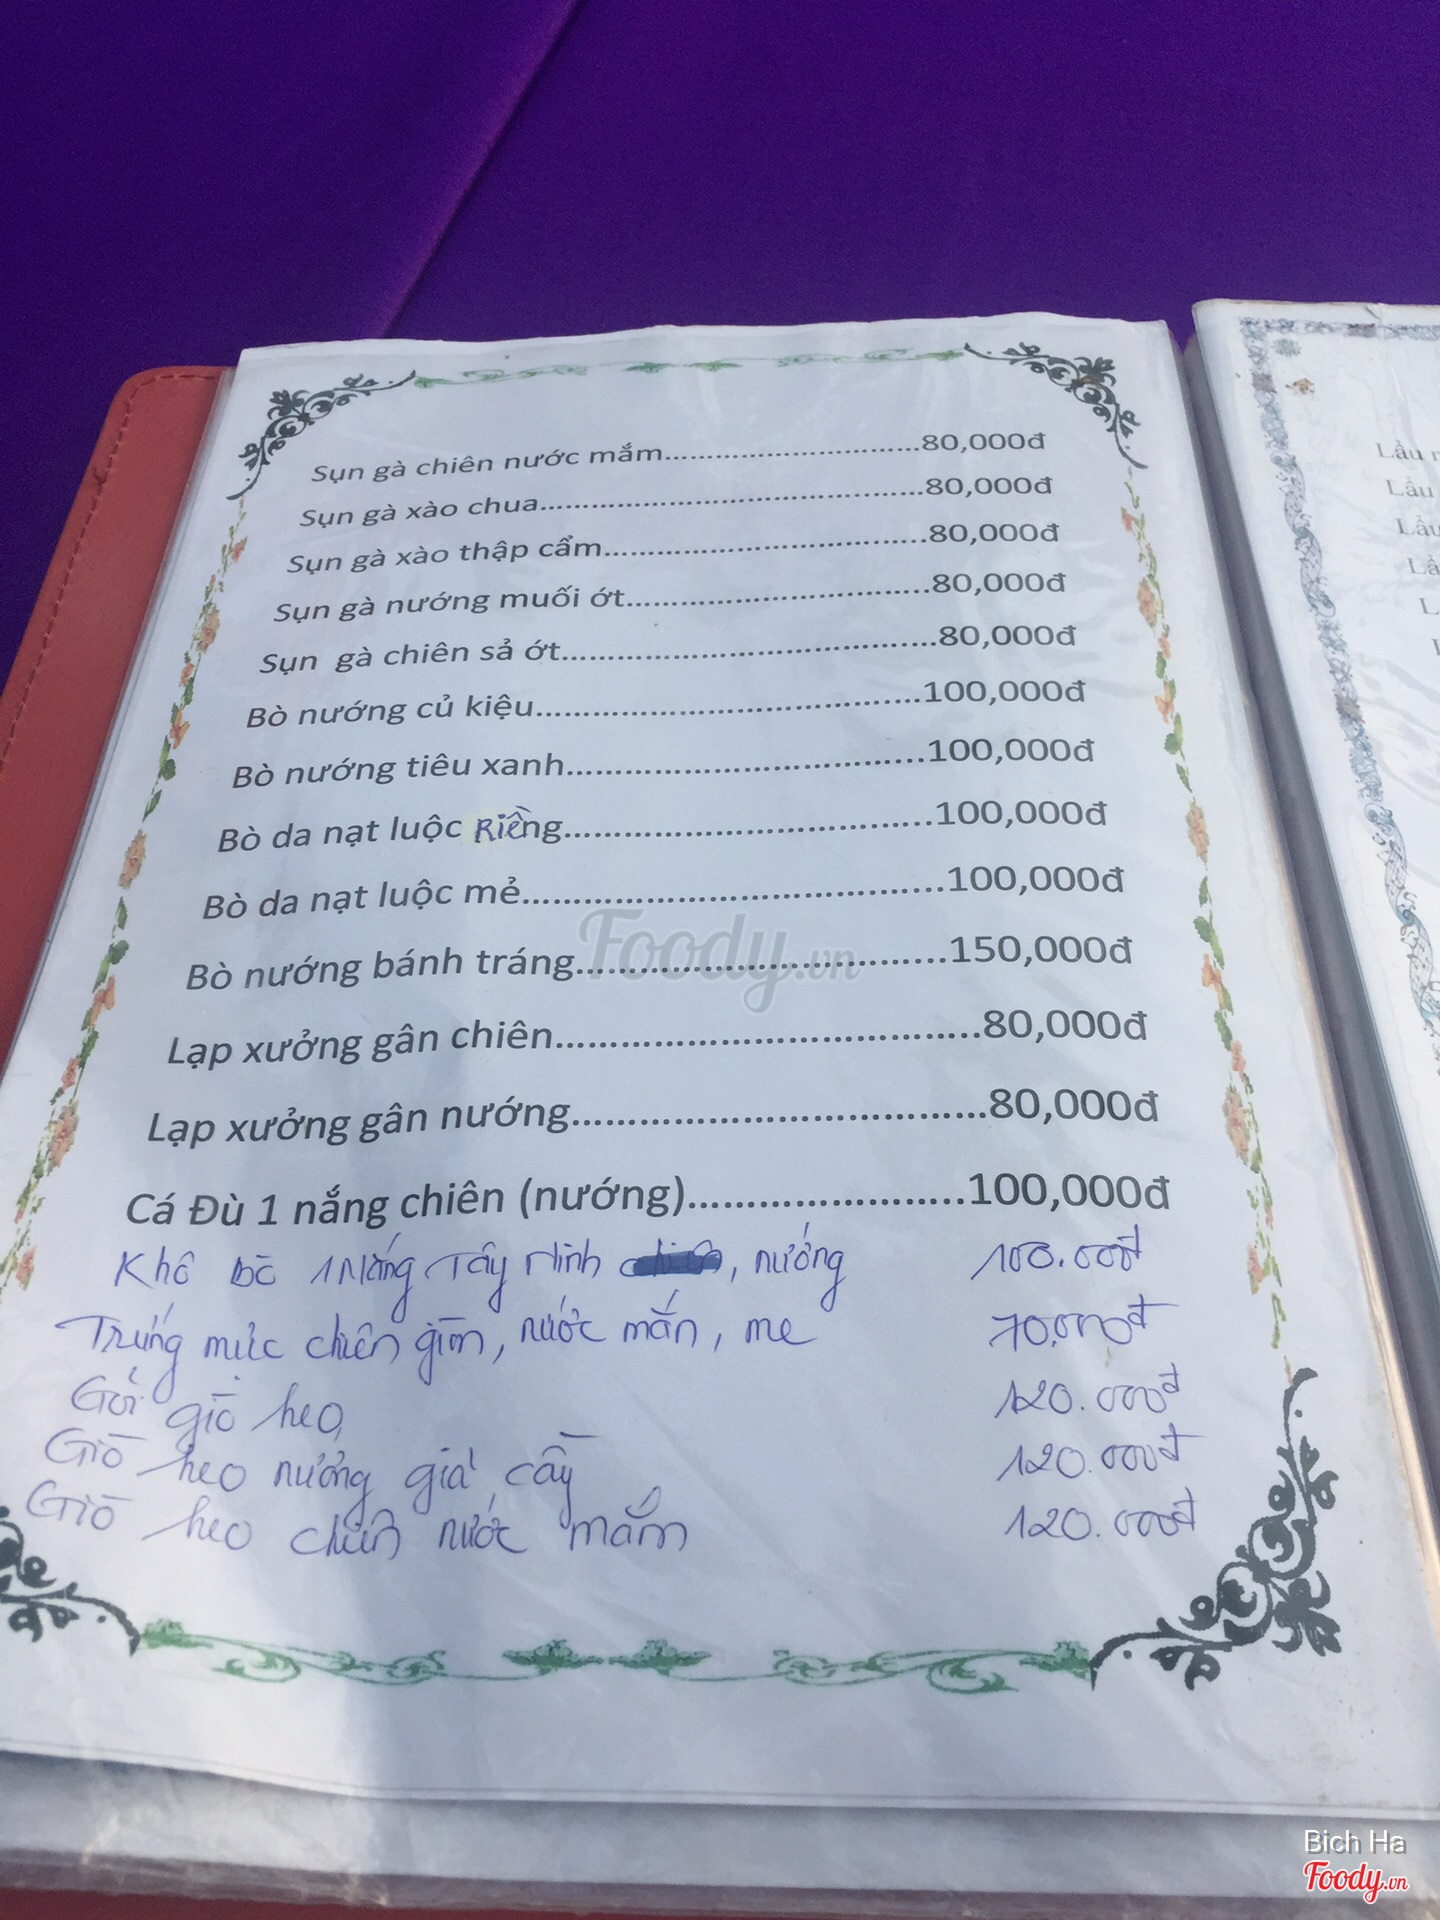 Sụn gà chiên nước mắm.....................................80,000đ
Sụn gà xào chua.....................................................80,000đ
Sụn gà xào thập cẩm.............................................80,000đ
Sụn gà nướng muối ớt..........................................80,000đ
Sụn gà chiên sả ớt................................................80,000đ
Bò nướng củ kiệu................................................100,000đ
Bò nướng tiêu xanh.............................................100,000đ
Bò da nạt luộc Riềng...........................................100,000đ
Bò da nạt luộc mẻ..............................................100,000đ
Bò nướng bánh tráng........................................150,000đ
Lạp xưởng gân chiên..........................................80,000đ
Lạp xưởng gân nướng........................................80,000đ
Cá Đù 1 nắng chiên (nướng)........................100,000đ
Khô bò 1 Nắng Tây Ninh , nướng 100.000đ
Trứng mực chiên giòn, nước mắn, me 70.000đ
Gỏi giò heo 120.000đ
Giò heo nướng giả cầy 120.000đ
Giò heo chiên nước mắm 120.000đ
Lẩu
Lẩu
Lẩu
Foody.vn
Bich Ha
Foody.vn